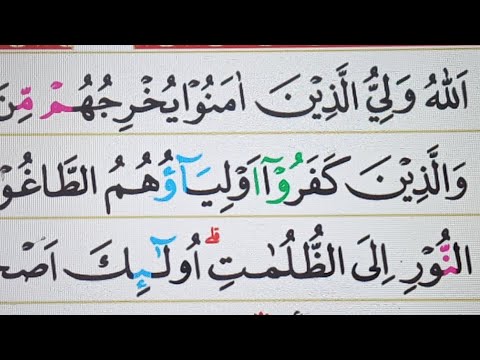 اَللّٰهُ وَلِيُّ الَّذِيْنَ اٰمَنُوْا يُخْرِجُهُمْ مِّنَ
وَالَّذِيْنَ كَفَرُوْۤا اَوْلِيَآؤُهُمُ الطَّاغُوْ
النُّوْرِ اِلَى الظُّلُمٰتِ ؕ اُولٰٓئِكَ اَصْح